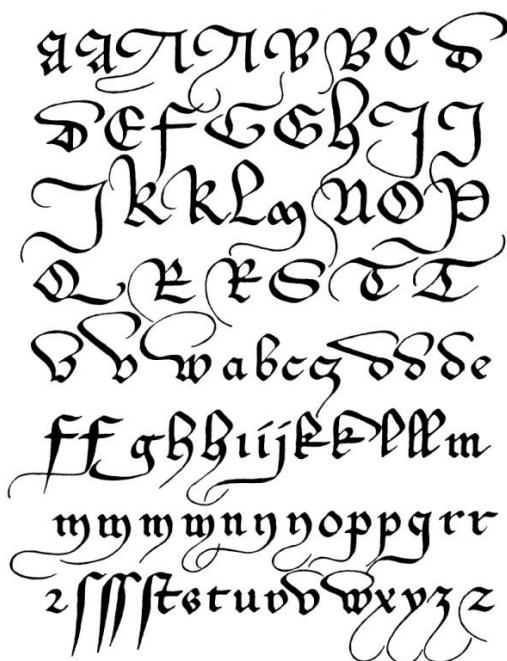 A A A A B B C D
D E F G G H J J
J K K L M N O P
Q R R S T T
V V W a b c ç d d d e
f f g h h i i j k k l ll m
m m m m n n n o p p q r r
r ſ ſſ ſt s t u v v w x y z z